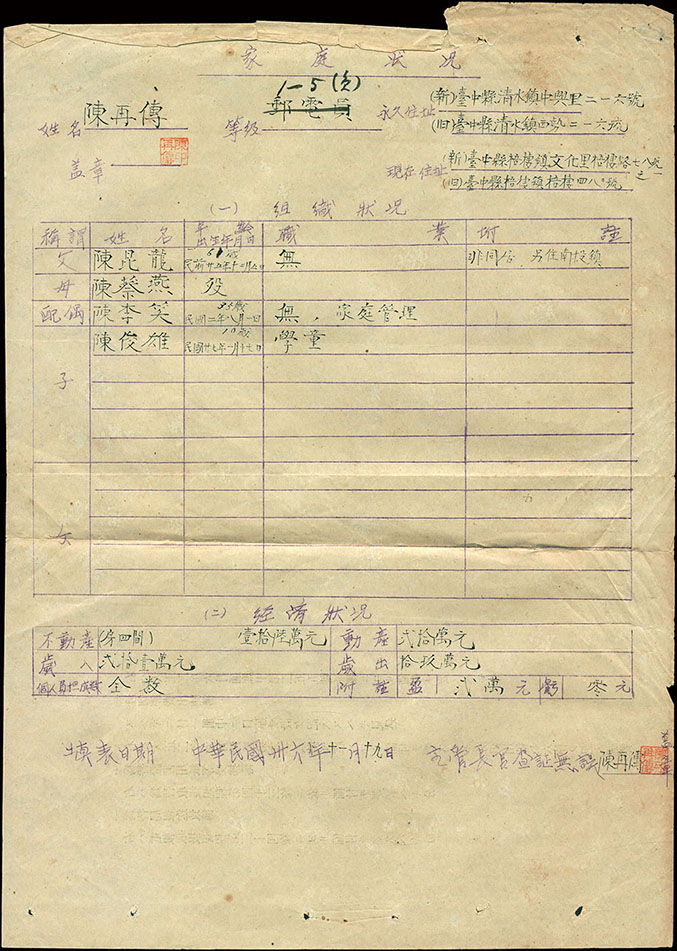 家庭狀況
1-5(負)
姓名 陳再傳 等級 郵電員 永久住址 (新)臺中縣清水鎮中興里二一六號
(旧)臺中縣清水鎮西勢二一六號
蓋章 現在住址 (新)臺中縣梧棲鎮文化里梧棲路七八號之一
(旧)臺中縣梧棲鎮梧棲四八號
(一) 組織狀況
稱謂 姓名 年齡 出生年月日 職業 附註
父 陳昆龍 無 非同居 另住南投鎮
母 陳蔡燕 歿
配偶 陳李笑 35歲 民國二年八月一日 無,家庭管理
子 陳俊雄 10歲 民國廿七年一月十七日 學童
女
(二) 經濟狀況
不動產 (房四間) 壹拾陸萬元 動產 弍拾萬元
歲入 弍拾壹萬元 歲出 拾玖萬元
全数 附註 盈 弍萬元 虧 零元
填表日期 中華民國卅六年十一月十九日 主管長官查証無誤 陳再傳 蓋章